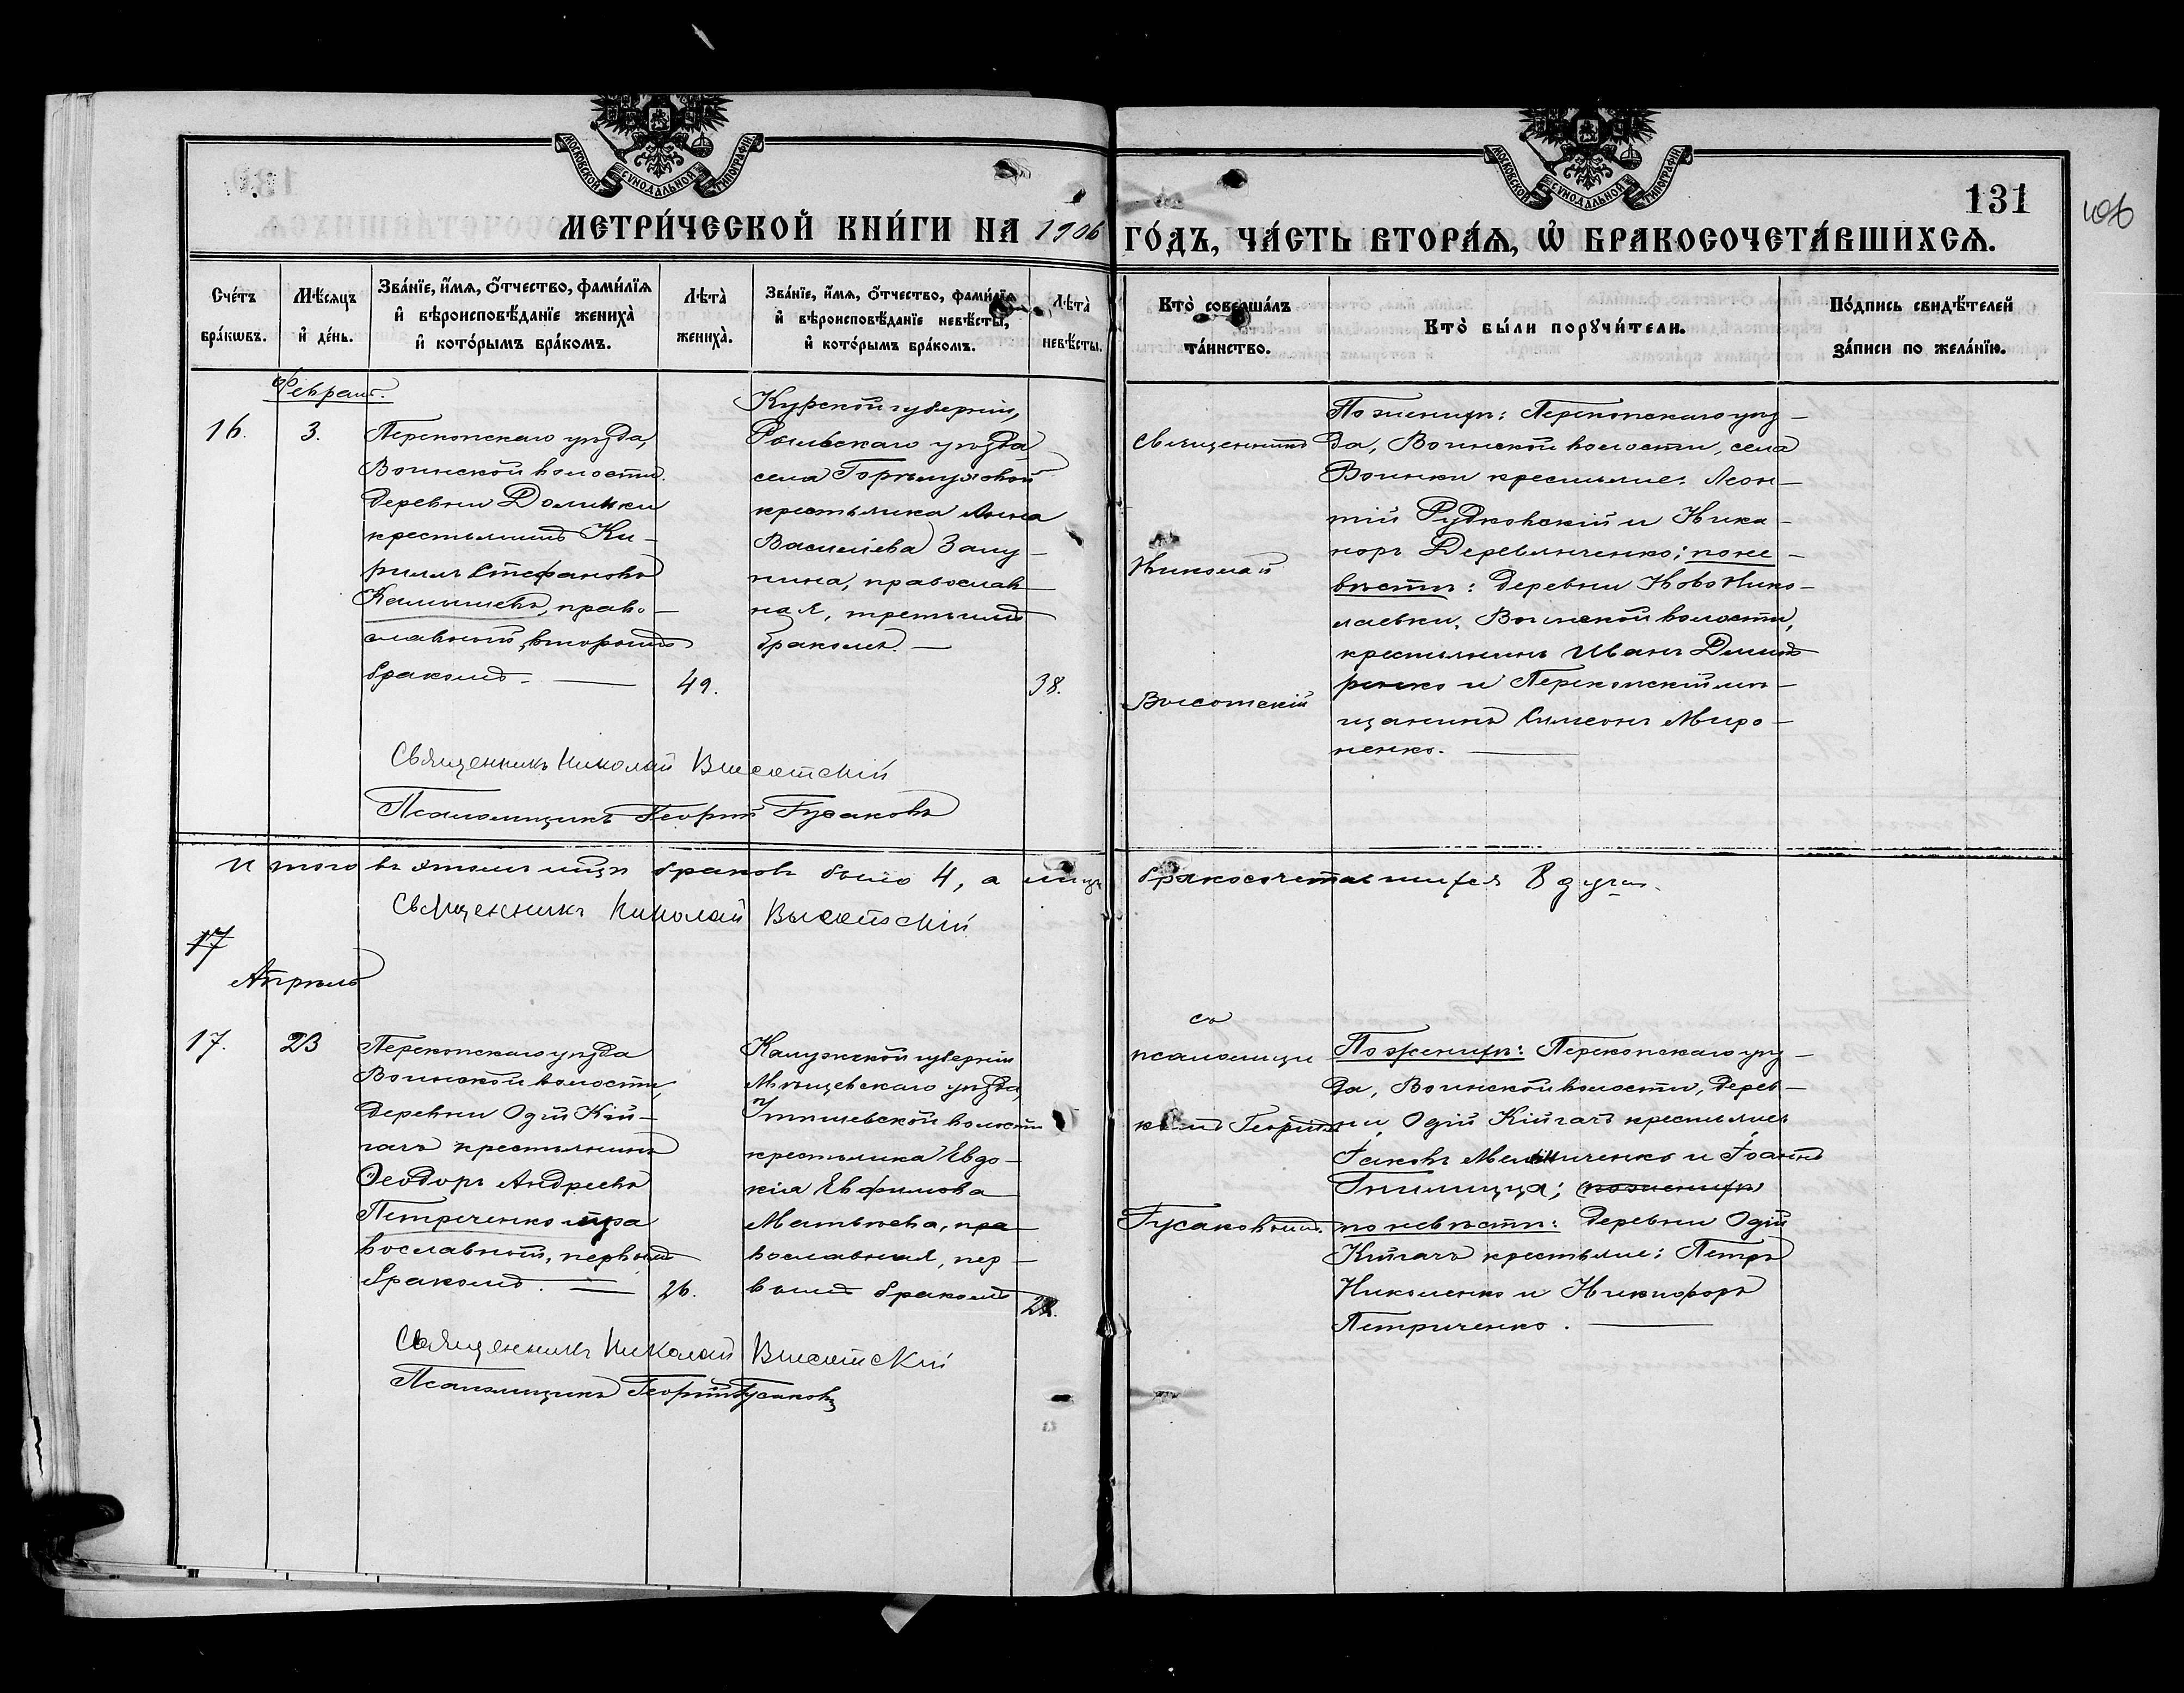 МОСКОВСКОЙ СѴНОДАЛЬНОЙ ТИПОГРАФІИ.
МОСКОВСКОЙ СѴНОДАЛЬНОЙ ТИПОГРАФІИ.
131
106
МЕТРИ́ЧЕСКОЙ КНИ́ГИ НА 1906 ГО́ДЪ, ЧА́СТЬ ВТОРА́Ѧ, Ѡ҆ БРАКОСОЧЕТА́ВШИХСѦ.
Сче́тъ
бра́кѡвъ.
Мѣ́сѧцъ
и҆ де́нь.
Зва́нїе, и҆́мѧ, ѻ҆́тчество, фами́лїѧ
и҆ вѣроисповѣ́данїе жениха̀
и҆ кото́рымъ бра́комъ.
Лѣта̀
жениха̀.
Зва́нїе, и҆́мѧ, ѻ҆́тчество, фами́лїѧ
и҆ вѣроисповѣ́данїе невѣ́сты,
и҆ кото́рымъ бра́комъ.
Лѣта̀
невѣ́сты.
Кто̀ соверша́лъ
та́инство.
Кто̀ бы́ли порꙋчи́тели.
По́дпись свидѣ́телей
за́писи по жела́нїю.
Февраль.
16.
3.
Перекопскаго уѣзда,
Воинской волости
деревни Долинки
крестьянинъ Ки-
риллъ Стефановъ
Камышевъ, право-
славный, вторымъ
бракомъ. —
49.
Курской губерніи,
Рыльскаго уѣзда
села
крестьянка Анна
Васильева Запу-
нина, православ-
ная, третьимъ
бракомъ. —
38.
Священникъ
Николай
Высотскій
По женихѣ: Перекопскаго уѣз-
да, Воинской волости, села
Воинки крестьяне: Леон-
тій Рудковскій и Ника-
норъ Деревянченко; по не-
вѣстѣ: деревни Ново Нико-
лаевки, Воинской волости,
крестьянинъ Иванъ Дмит
ренко и Перекопскій мѣ-
щанинъ Симеонъ Миро-
ненко. —
Священникъ Николай Высотскій
Псаломщикъ Георгій Гусаковъ
Итого въ этомъ мѣсяцѣ браковъ было 4, а лицъ бракосочетавшихся 8 душъ.
Священникъ Николай Высотскій
17
Апрѣль
17.
23
Перекопскаго уѣзда
Воинской волости,
деревни Огій Кій-
гачъ крестьянинъ
Ѳеодоръ Андреевъ
Петриченко пра
вославный, первымъ
бракомъ. —
26.
Калужской губерніи
Мещевскаго уѣзда,
волости
крестьянка Евдо-
кія Евфимова
Матвѣева, пра
вославная, пер-
вымъ бракомъ
Со
псаломщи
комъ Георгіемъ
Гусаковымъ.
По женихѣ: Перекопскаго уѣз-
да, Воинской волости, дерев-
ни Огій Кійгачъ крестьяне:
Іаковъ и Іоаннъ
по женихѣ
по невѣстѣ: деревни Огій
Кійгачъ крестьяне: Петръ
Николенко и Никифоръ
Петриченко. —
Священникъ Николай Высотскій
Псаломщикъ Георгій Гусаковъ